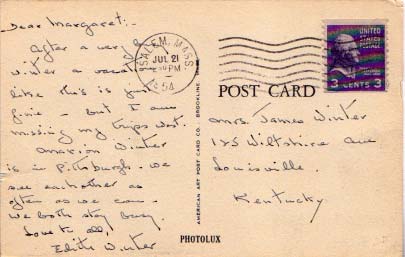 Dear Margaret:-
After a very b
winter a vacation
like this is just
fine - but I am
missing my trips West.
Marion Winter
is in Pittsburgh. We
see each other as
often as we can.
We both stay busy.
Love to all,
Edith Winter
SALEM, MASS.
JUL 21
PM
54
UNITED
STATES
POSTAGE
3 CENTS 3
POST CARD
Mrs. James Winter
125 Wiltshire Ave
Louisville.
Kentucky
AMERICAN ART POST CARD CO. - BROOKLINE
PHOTOLUX